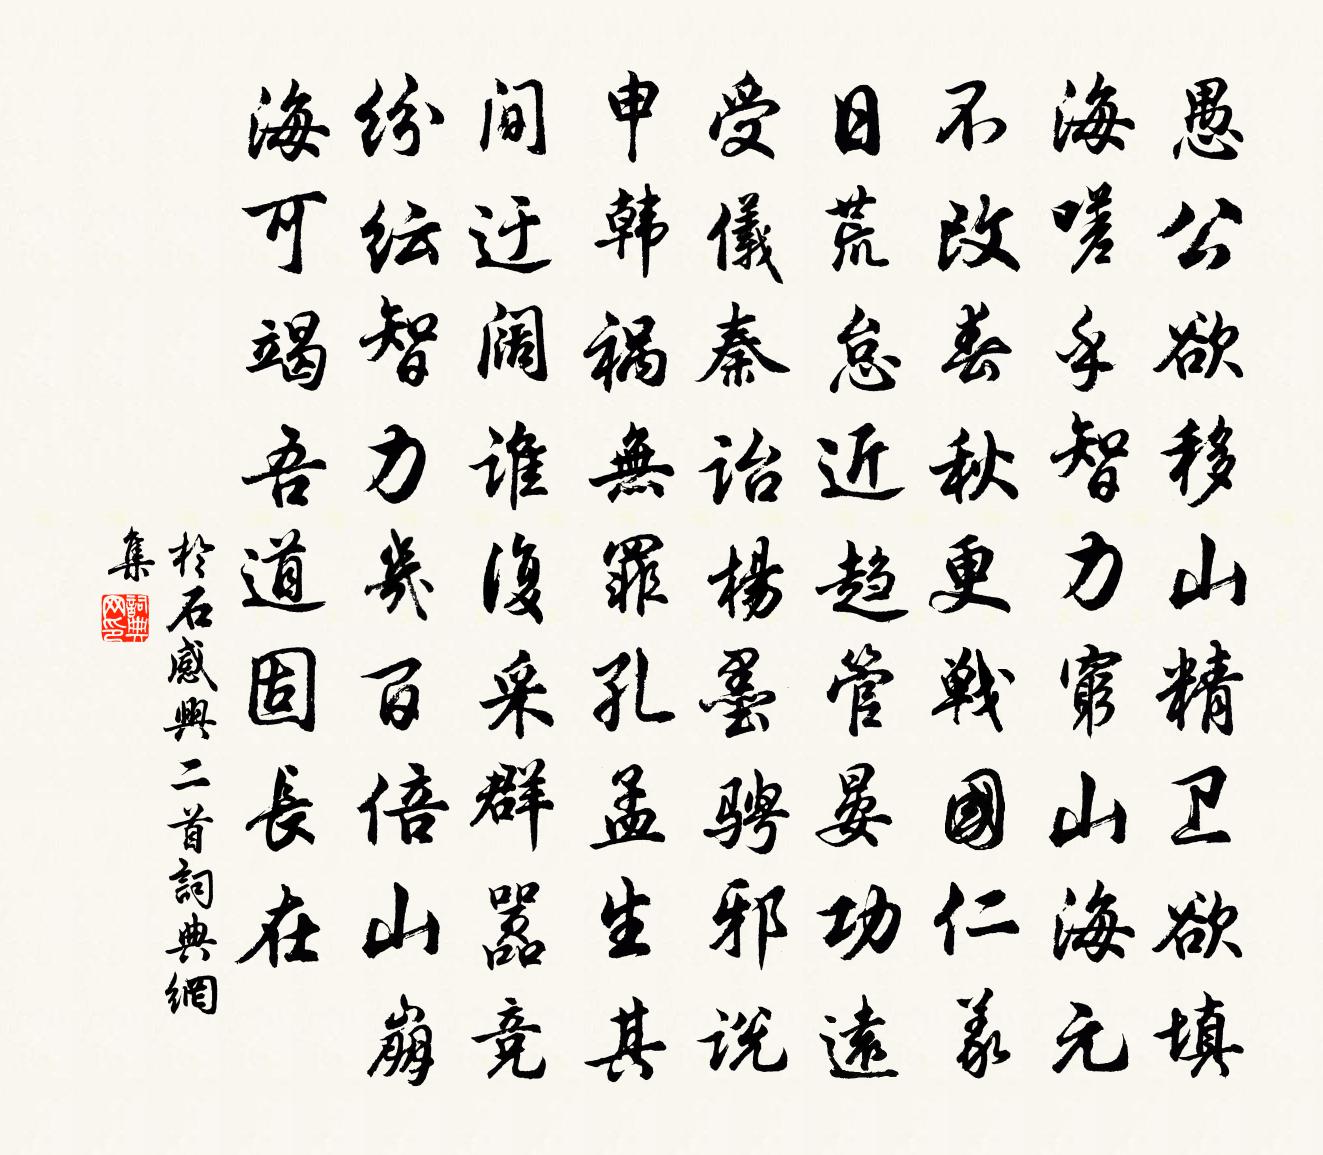 愚公欲移山精卫欲填
海嗟乎智力穷山海元
不改春秋更戰國仁义
日荒怠近趋管晏功遠
受儀秦詒楊墨骋邪说
申韩祸無罪孔孟生其
间迂阔谁復采群嚣竞
纷纭智力幾百倍山崩
海可竭吾道固長在
於石感興二首詞典網
集
詞典网印